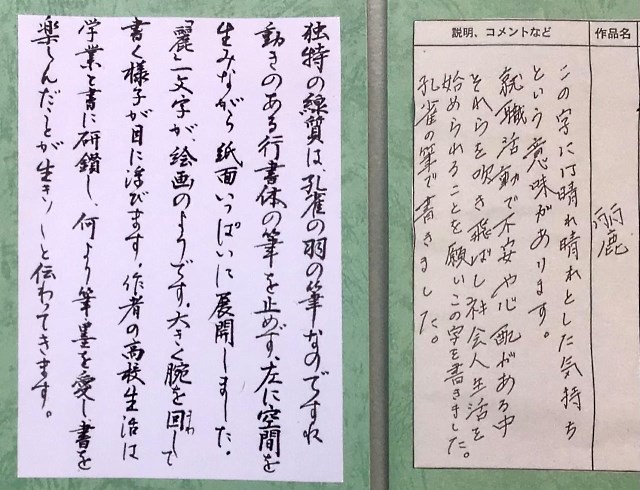 作品名
麗
説明、コメントなど
この字には晴れ晴れとした気持ち
という意味があります。
就職活動で不安や心配がある中
それらを吹き飛ばし社会人生活を
始められることを願いこの字を書きました。
孔雀の筆で書きました。
独特の線質は、孔雀の羽の筆なのですね
動きのある行書体の筆を止めず、左に空間を
生みながら紙面いっぱいに展開しました。
「麗」一文字が絵画のようです。大きく腕を回して
まわ
書く様子が目に浮びます。作者の高校生活は
学業と書に研鑽し、何より筆墨を愛し書を
楽しんだことが生き〱と伝わってきます。